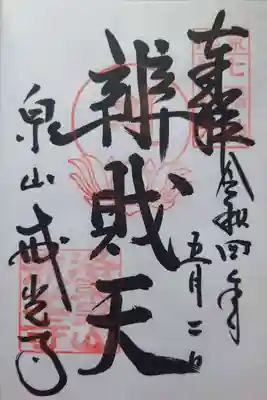 奉拝
令和四年
五月二日
辨財天
泉山
戒光寺